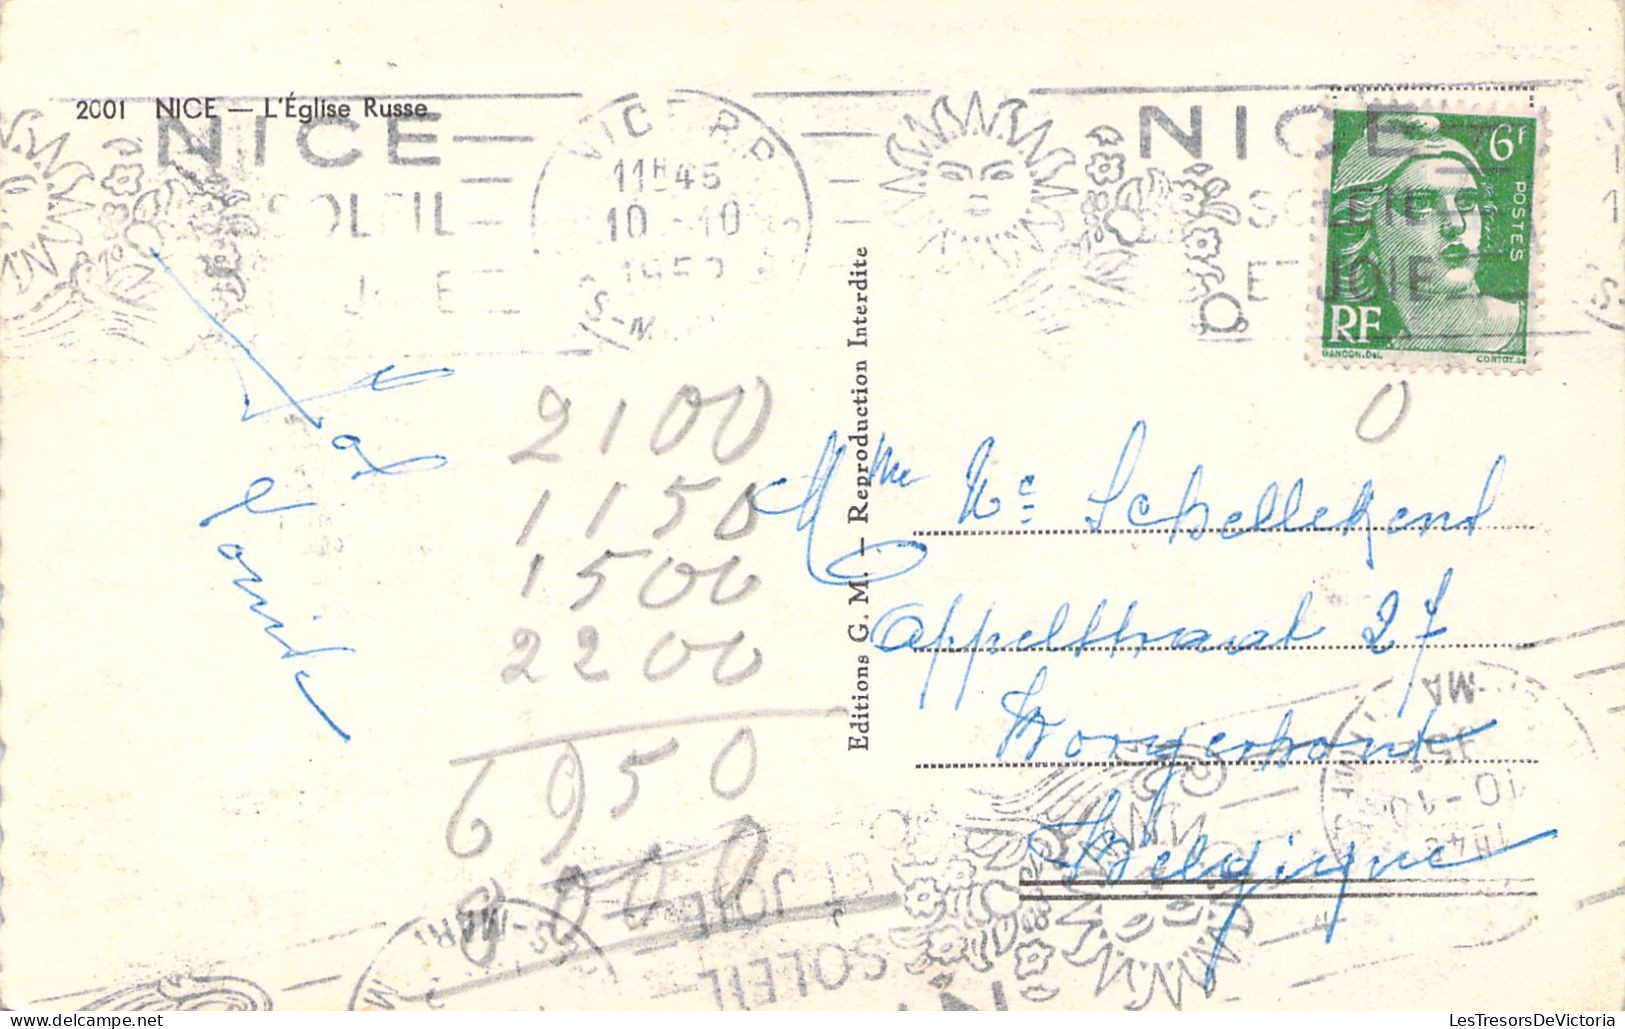 2001 NICE — L'Église Russe
NICE
SOLEIL
NICE R.P.
11H45
10 -10
NICE
SOLEIL
ET JOIE
6f
POSTES
RF
GANDON. DEL.
CORTOT. SC
Editions G. M. — Reproduction Interdite
2100
1150
1500
2200
6950
0
Mme Schellekens
Appelstraat 27
Borgerhout
Belgique
SOLEIL
ET JOIE
10 -10
LesTresorsDeVictoria